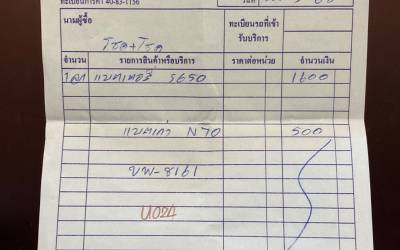 ทะเบียนการค้า 40-83-1156
วันที่
นามผู้ซื้อ
ทะเบียนรถที่เข้า
รับบริการ
จำนวน รายการสินค้าหรือบริการ ราคาต่อหน่วย จำนวนเงิน
1ลูก แบตเตอรี่ S650 1600
แบตเก่า N70 500
บพ-8161
U024